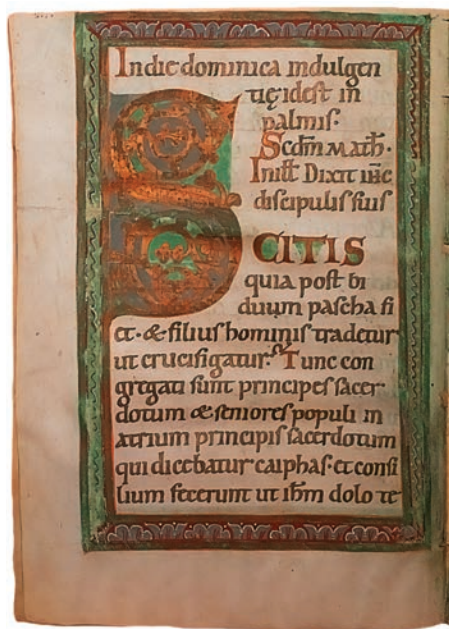 In die dominica indulgen
tię idest in
palmis·
Scdm math·
In illt Dixit ihc
discipulis suis
SCITIS
quia post bi
duum pascha fi
et· & filius hominis tradetur
ut crucifigatur: Tunc con
gregati sunt principes sacer
dotum & seniores populi in
atrium principis sacerdotum
qui dicebatur caiphas· et consi
lium fecerunt ut ihm dolo te